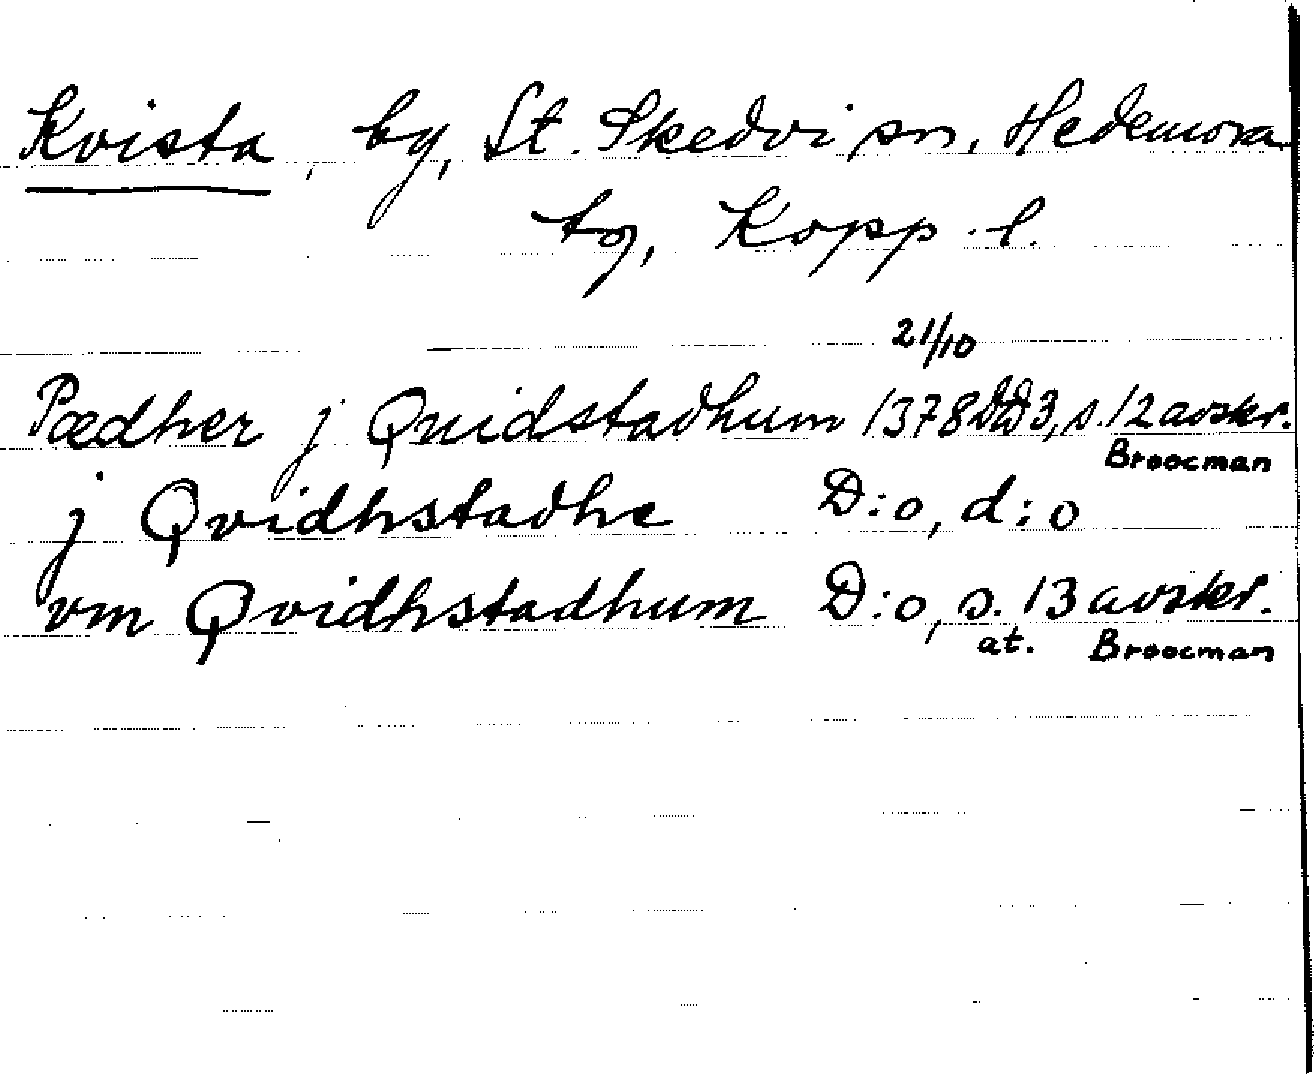 Kvista, by, St. Skedvi sn, Hedemora
tg, Kopp. l.
21/10
Pædher j Quidstadhum 1378 DD 3, s. 12 avskr.
Broocman
j Qvidhstadhe D:o, d:o
vm Qvidhstadhum D:o, s. 13 avskr.
at. Broocman